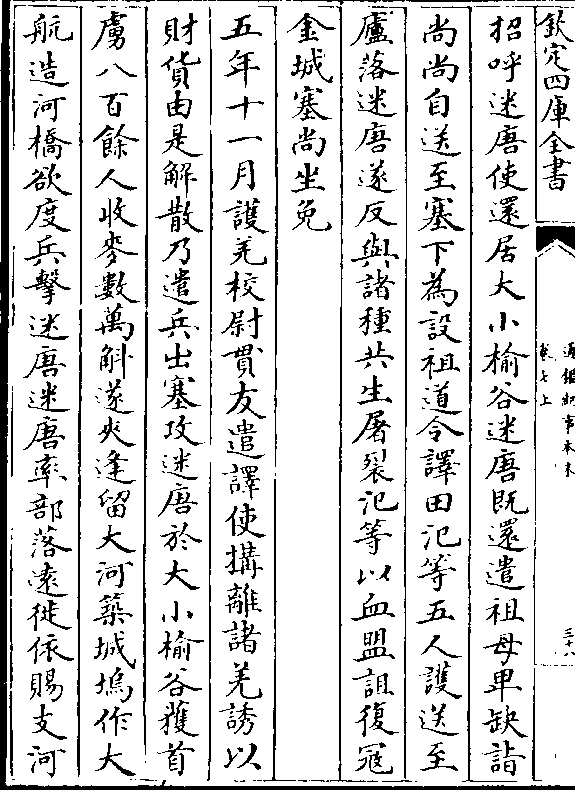 欽定四庫全書
通鑑紀事本末
卷七上
三十八
招呼迷唐使還居大小榆谷迷唐既還遣祖母卑缺詣
尚尚自送至塞下為設祖道令譯田汜等五人護送至
廬落迷唐遂反與諸種共生屠裂汜等以血盟詛復冦
金城塞尚坐免
五年十一月護羌校尉貫友遣譯使搆離諸羌誘以
財貨由是解散乃遣兵出塞攻迷唐於大小榆谷獲首
虜八百餘人收麥數萬斛遂夾逢留大河築城塢作大
航造河橋欲度兵擊迷唐迷唐率部落遠徙依賜支河